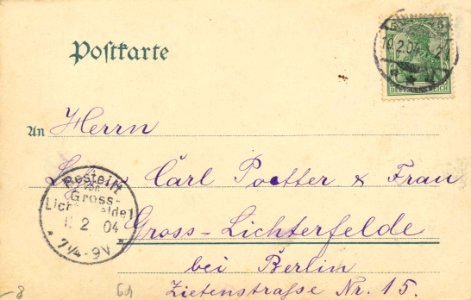 Postkarte
10.2.04
DEUTSCHES REICH
An Herrn
Carl Poetter & Frau
Gross-Lichterfelde
bei Berlin
Zietenstraße Nr. 15.
Bestellt
Gross-
Lichterfelde 1
2 04
7¼-9V
-8